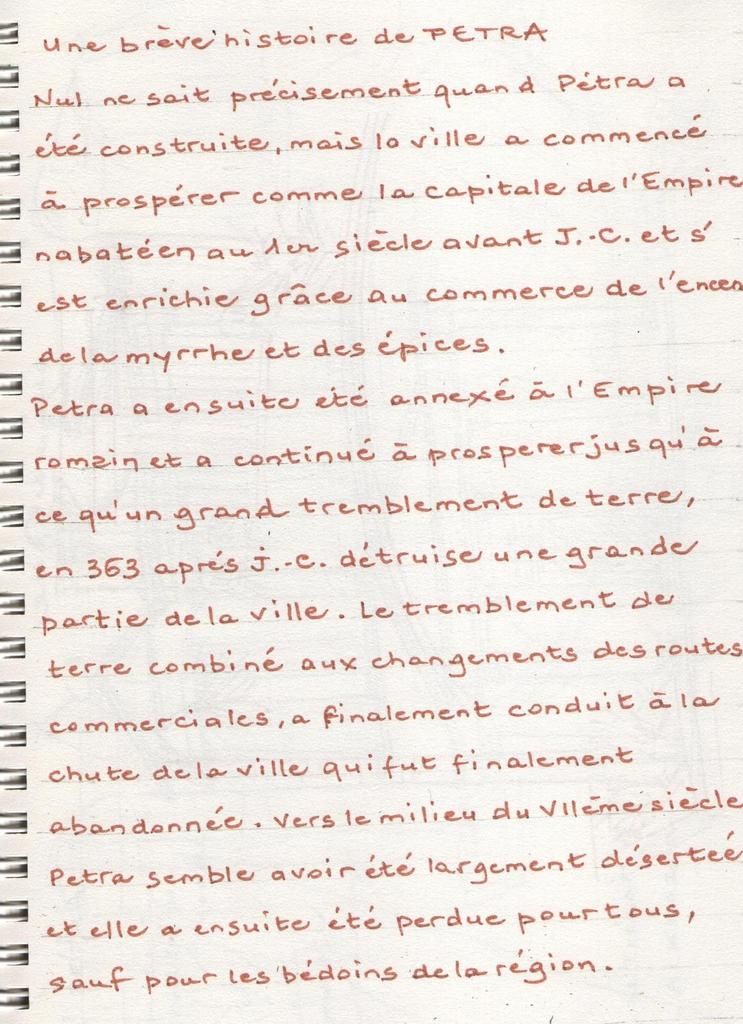 Une brève histoire de PETRA
Nul ne sait précisement quand Pétra a
été construite, mais la ville a commencé
à prospérer comme la capitale de l'Empire
nabatéen au 1er siècle avant J.-C. et s'
est enrichie grâce au commerce de l'encen
de la myrrhe et des épices.
Petra a ensuite eté annexé à l'Empire
romain et a continué à prosperer jusqu'à
ce qu'un grand tremblement de terre,
en 363 aprés J.-C. détruise une grande
partie de la ville. Le tremblement de
terre combiné aux changements des routes
commerciales, a finalement conduit à la
chute de la ville qui fut finalement
abandonnée. Vers le milieu du VIIème siècle
Petra semble avoir été largement déserteé
et elle a ensuite été perdue pour tous,
sauf pour les bédoins de la région.